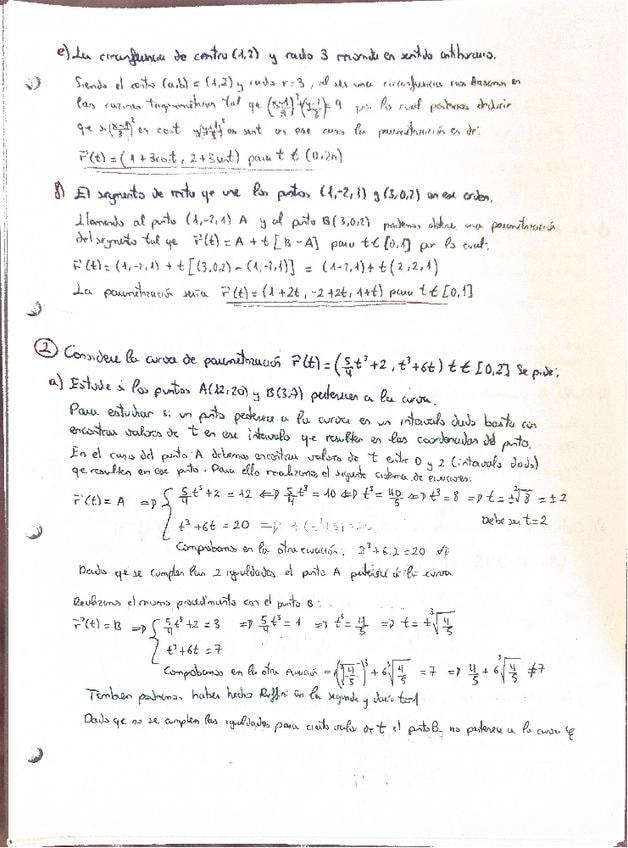 e) La circunferencia de centro (1,2) y radio 3 recorrida en sentido antihorario.
Siendo el centro (a,b) = (1,2) y radio r=3, al ser una circunferencia nos basamos en
las razones trigonométricas tal qe (x-1/3)²+(y-2/3)²= 9 por lo cual podemos deducir
qe si (x-1/3)² es cost y (y-2/3)² es sent en ese caso la parametrización es de:
r(t) = (1+3cost, 2+3sent) para t ∈ (0,2π)
f) El segmento de recta qe une los puntos (1,-2,1) y (3,0,2) en ese orden.
Llamando al punto (1,-2,1) A y al punto B(3,0,2) podemos obtener una parametrización
del segmento tal qe r(t) = A + t[B-A] para t ∈ [0,1] por lo cual:
r(t) = (1,-2,1) + t[(3,0,2) - (1,-2,1)] = (1-2,1) + t(2,2,1)
La parametrización sería r(t) = (1+2t, -2+2t, 1+t) para t ∈ [0,1]
2 Considere la curva de parametrización r(t) = (5/4 t³+2, t³+6t) t ∈ [0,2] Se pide:
a) Estudie si los puntos A(12,20) y B(3,7) pertenecen a la curva.
Para estudiar si un punto pertenece a la curva en un intervalo dado basta con
encontrar valores de t en ese intervalo qe resulten en las coordenadas del punto.
En el caso del punto A debemos encontrar valores de t entre 0 y 2 (intervalo dado)
qe resulten en ese punto. Para ello realizamos el siguiente sistema de ecuaciones:
r(t) = A ⇒ { 5/4 t³+2 = 12 ⇔ 5/4 t³ = 10 ⇔ t³ = 40/5 ⇔ t³ = 8 ⇒ t = ±∛8 = ±2
t³+6t = 20 Debe ser t=2
Comprobamos en la otra ecuación: 2³+6·2 = 20
Dado qe se cumplen las 2 igualdades el punto A pertenece a la curva
Realizamos el mismo procedimiento con el punto B:
r(t) = B ⇒ { 5/4 t³+2 = 3 ⇒ 5/4 t³ = 1 ⇒ t³ = 4/5 ⇒ t = ±∛4/5
t³+6t = 7
Comprobamos en la otra ecuación = (∛4/5)³ + 6∛4/5 = 7 ⇒ 4/5 + 6∛4/5 ≠ 7
Tambien podriamos haber hecho Ruffini en la segunda y daria t=1
Dado qe no se cumplen las igualdades para cierto valor de t el punto B no pertenece a la curva